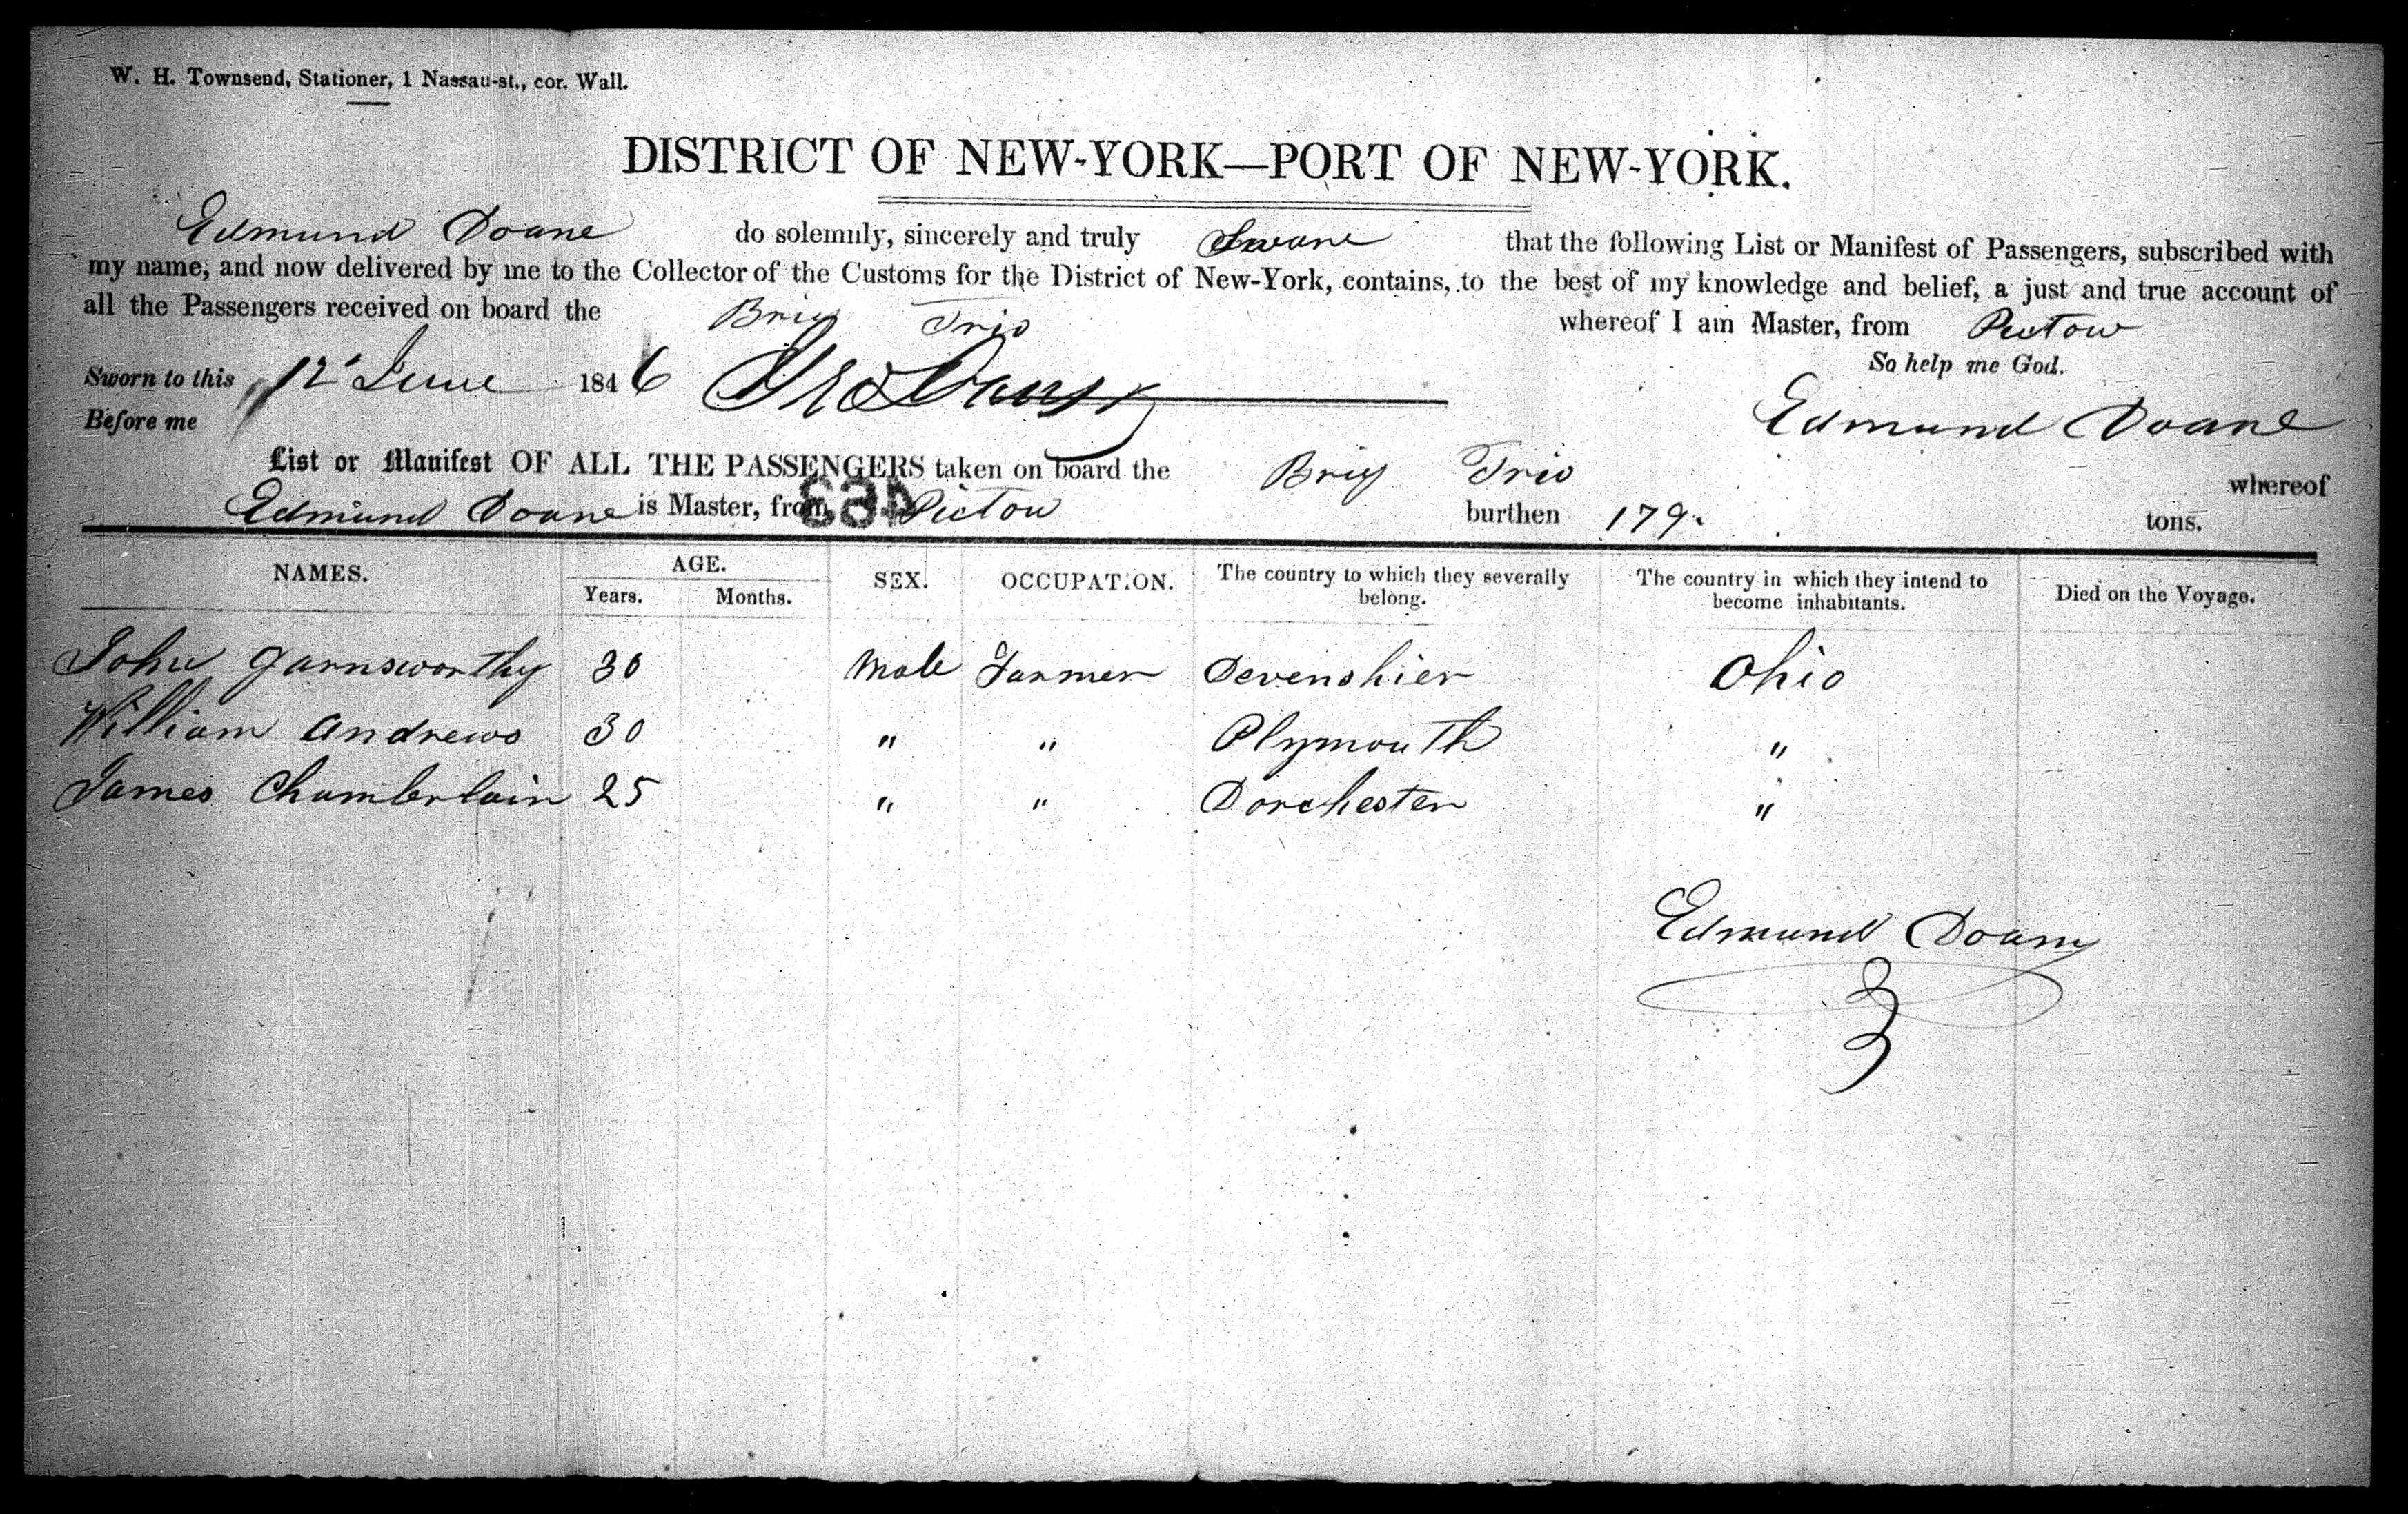 W. H. Townsend, Stationer, 1 Nassau-st., cor. Wall.
DISTRICT OF NEW-YORK—PORT OF NEW-YORK.
Edmund Doane do solemnly, sincerely and truly Sware that the following List or Manifest of Passengers, subscribed with
my name, and now delivered by me to the Collector of the Customs for the District of New-York, contains, to the best of my knowledge and belief, a just and true account of
all the Passengers received on board the Brig Trio whereof I am Master, from Pictow
So help me God.
Sworn to this 12 June 1846
Before me
Edmund Doane
List or Manifest OF ALL THE PASSENGERS taken on board the Brig Trio whereof
Edmund Doane is Master, from Pictou burthen 179. tons.
463
NAMES. AGE. SEX. OCCUPATION. The country to which they severally belong. The country in which they intend to become inhabitants. Died on the Voyage.
Years. Months.
John Garnsworthy 30 Male Farmer Devenshier Ohio
William Andrews 30 " " Plymouth "
James Chamberlain 25 " " Dorchester "
Edmund Doane
3